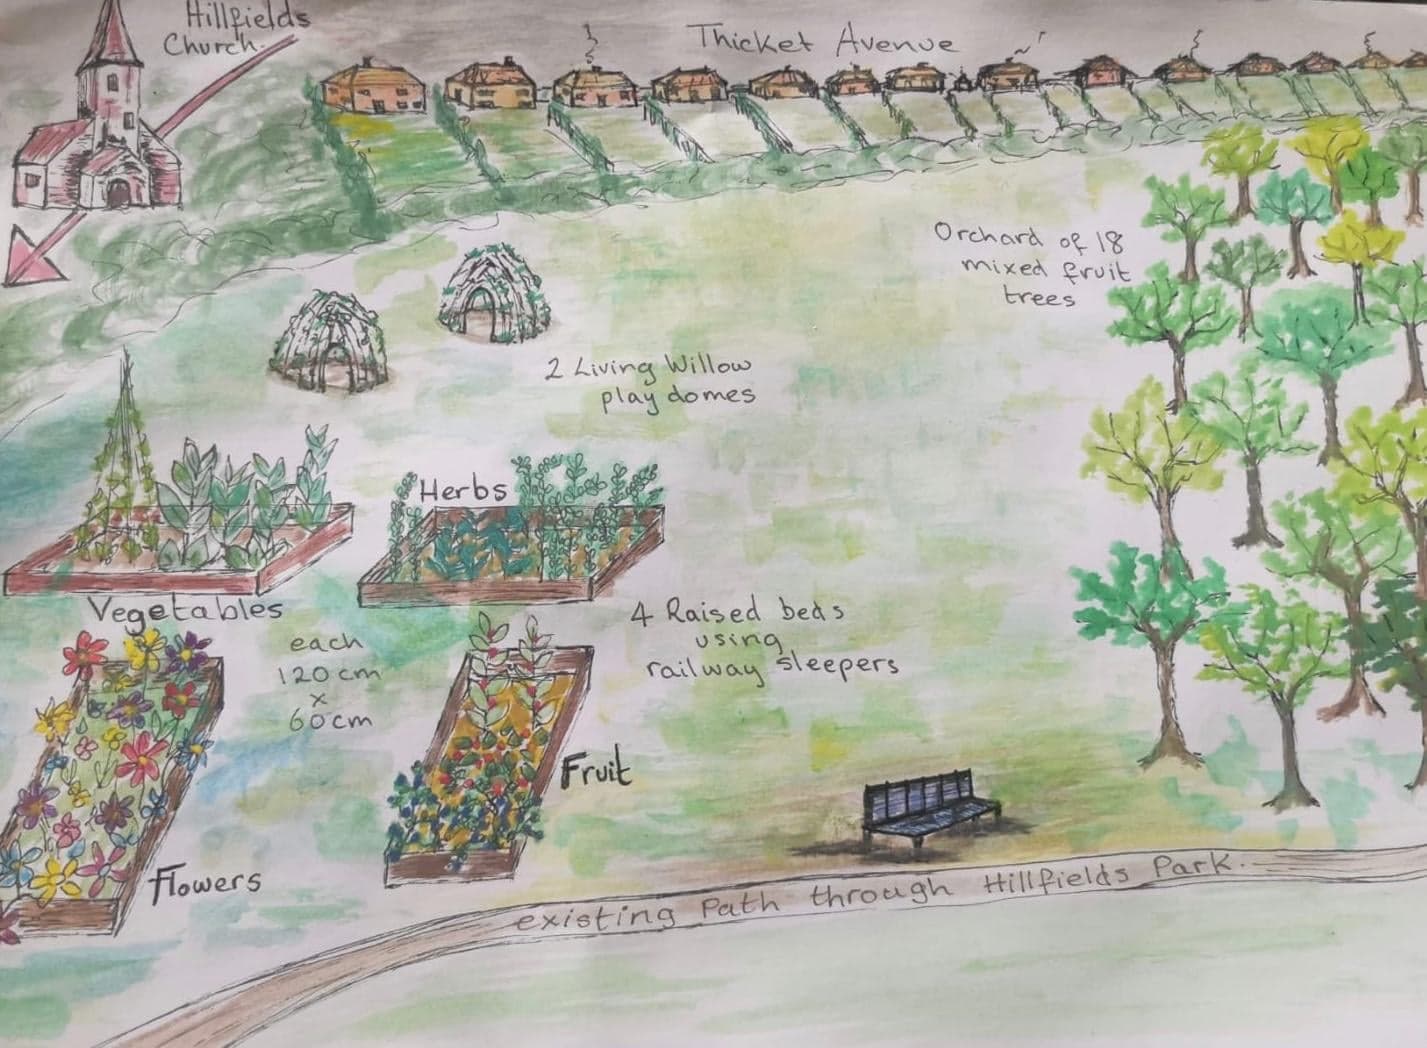 Hillfields
Church.
Thicket Avenue
Orchard of 18
mixed fruit
trees
2 Living Willow
play domes
Herbs
Vegetables
each
120cm
x
60cm
4 Raised beds
using
railway sleepers
Fruit
Flowers
existing Path through Hillfields Park.